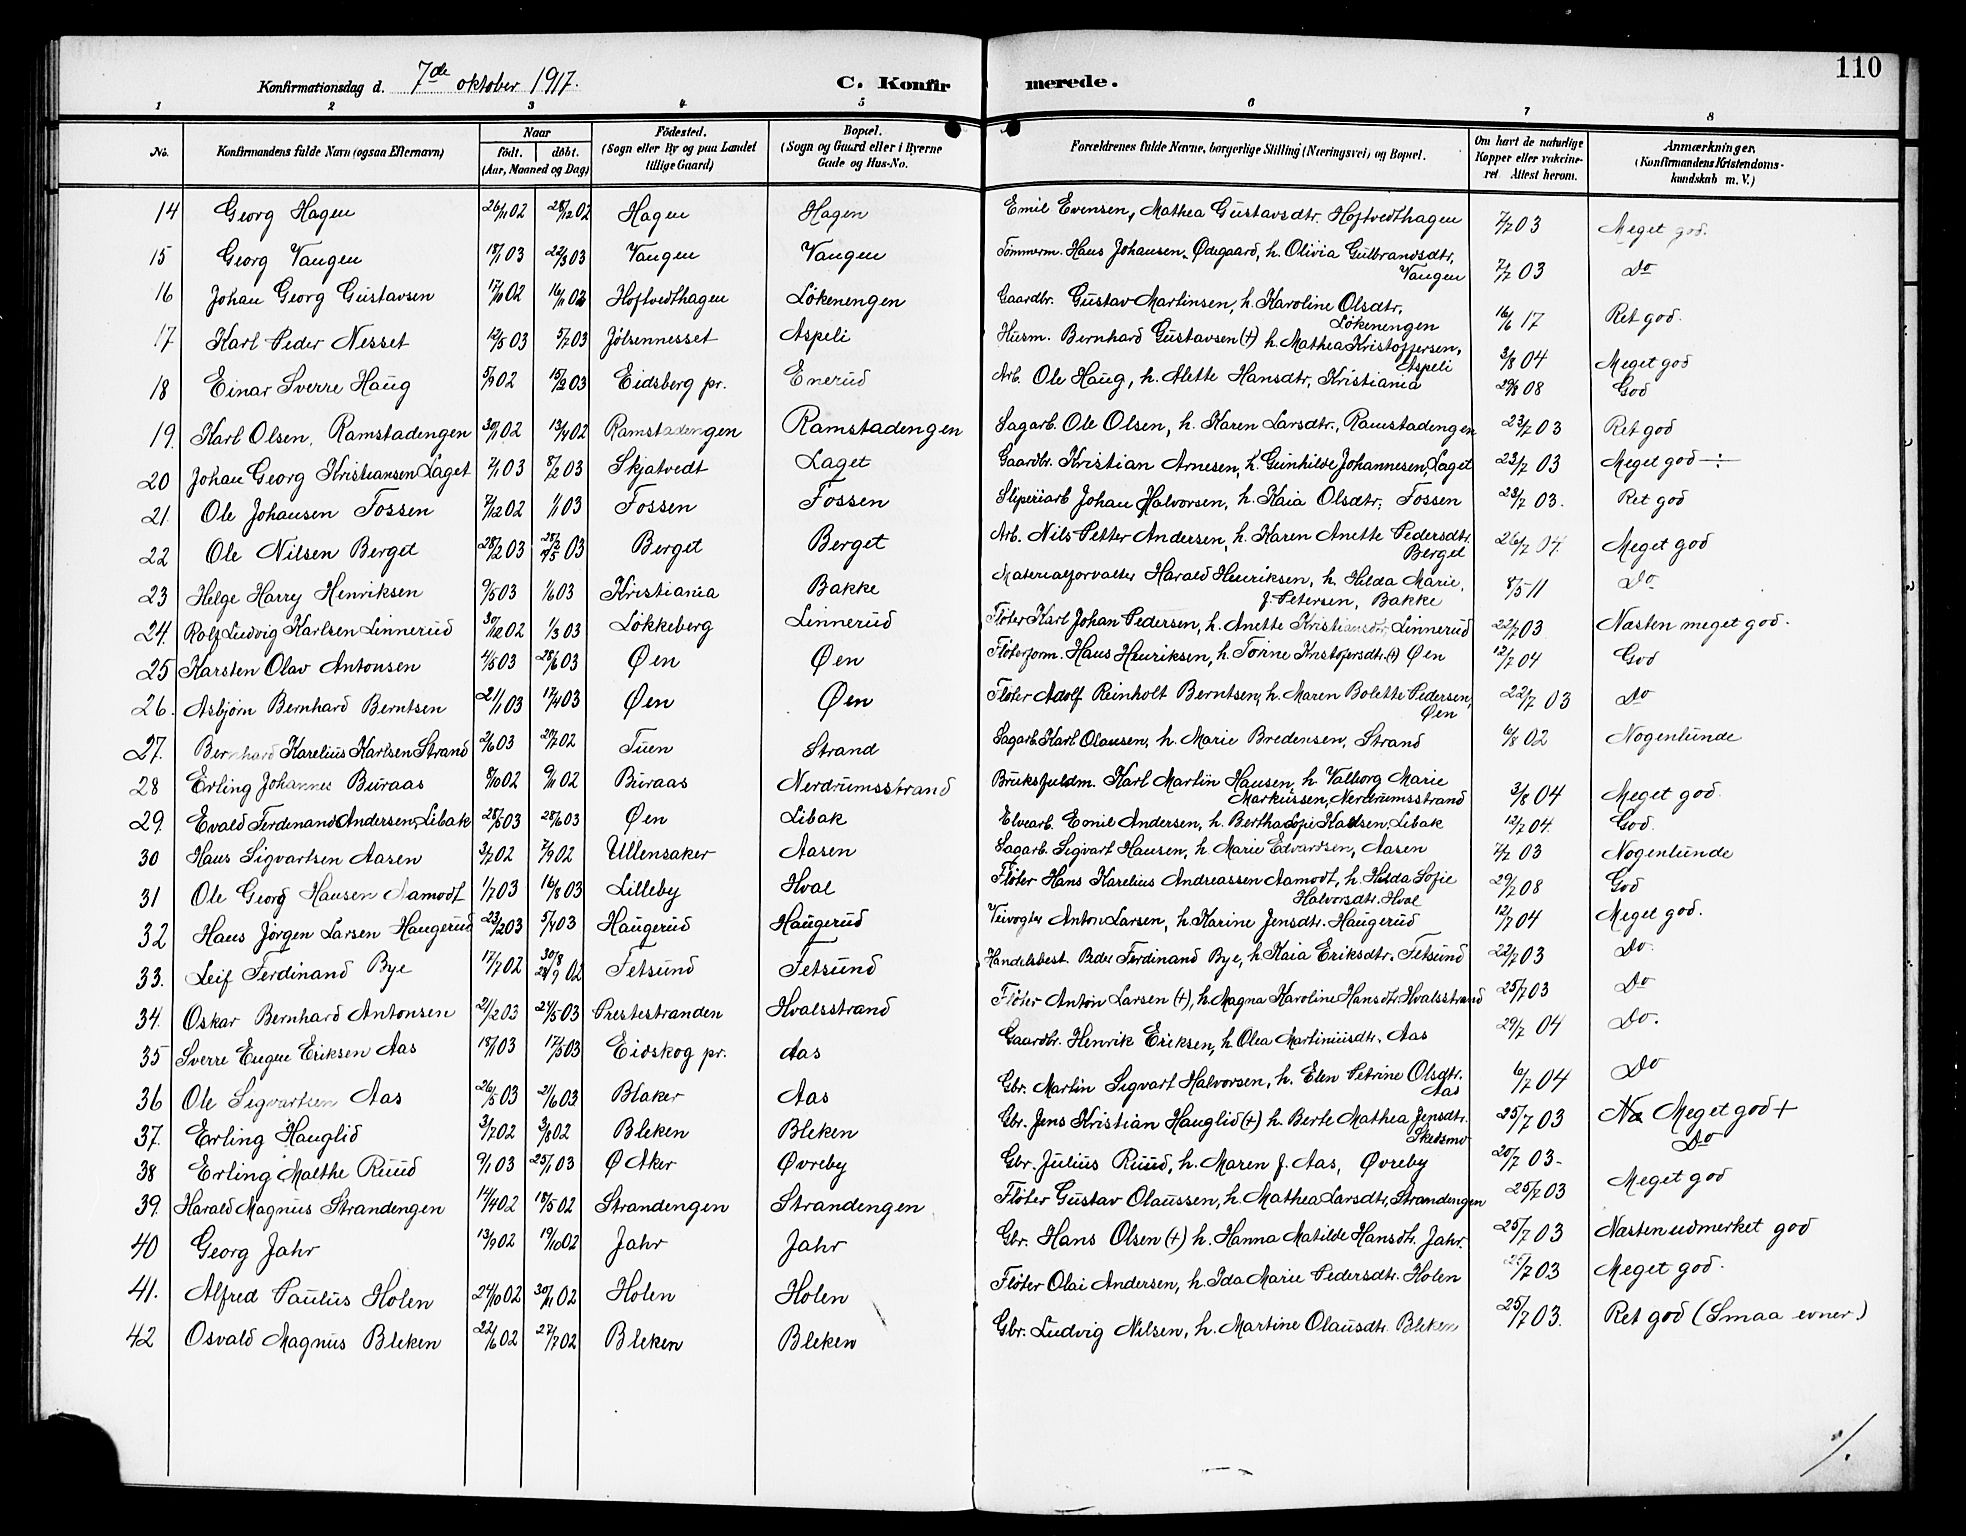 110
Konfirmationsdag d. 7de oktober 1917. C. Konfirmerede.
1 2 3 4 5 6 7 8
No. Konfirmandens fulde Navn (ogsaa Efternavn) Naar født. døbt. (Aar, Maaned og Dag) Fødested. (Sogn eller By og paa Landet tillige Gaard) Bopæl. (Sogn og Gaard eller i Byerne Gade og Hus-No. Forældrenes fulde Navne, borgerlige Stilling (Næringsvei) og Bopæl. Om havt de naturlige Kopper eller vakcineret Attest herom. Anmærkninger. (Konfirmandens Kristendomskundskab m. V.)
14 Georg Hagen 26/11 02 28/12 02 Hagen Hagen Emil Evensen, Mathea Gustavsdtr. Hoftvedthagen 7/7 03 Meget god.
15 Georg Vangen 18/1 03 22/3 03 Vangen Vangen Tømmerm. Hans Johansen Ødegaard, h. Olivia Gulbrandsdtr, Vangen 7/7 03 Do
16 Johan Georg Gustavsen 17/9 02 16/11 02 Hoftvedthagen Løkenengen Gaardbr. Gustav Martinsen, h. Karoline Olsdtr, Løkenengen 16/6 17 Ret god.
17 Karl Peder Nesset 12/5 03 5/7 03 Jølsennesset Aspeli Husm. Bernhard Gustavsen (+) h. Mathea Kristoffersen, Aspeli 3/8 04 Meget god
18 Einar Sverre Haug 5/9 02 15/2 03 Eidsberg pr. Enerud Arb. Ole Haug, h. Alette Hansdtr, Kristiania 29/8 08 God
19. Karl Olsen, Ramstadengen 30/1 02 13/4 02 Ramstadengen Ramstadengen Sagarb. Ole Olsen, h. Karen Larsdtr., Ramstadengen 23/7 03 Ret god
20 Johan Georg Kristiansen Laget 7/1 03 8/2 03 Skjatvedt Laget Gaardbr. Kristian Arnesen, h. Gunhilde Johannesen, Laget 23/7 03 Meget god ÷
21. Ole Johansen Fossen 7/12 02 1/1 03 Fossen Fossen Sliperiarb Johan Halvorsen, h. Kaia Olsdtr, Fossen 23/7 03. Ret god
22 Ole Nilsen Berget 28/2 03 28/2 5 03 Berget Berget Arb. Nils Petter Andersen, h. Karen Anette Pedersdtr Berget 26/7 04. Meget god
23 Helge Harry Henriksen 9/5 03 1/6 03 Kristiania Bakke Materialforvalter Harald Henriksen, h. Hilda Marie, f. Petersen, Bakke 8/5 11 Do
24. Rolf Ludvig Karlsen Linnerud 30/12 02 1/3 03 Løkkeberg Linnerud Fløter Karl Johan Pedersen, h. Anette Kristiansdtr, Linnerud 22/7 03 Næsten meget god.
25 Karsten Olav Antonsen 4/5 03 28/6 03 Øen Øen Fløterform. Hans Henriksen, h. Torine Kristofersdtr. (+) Øen 12/7 04 God
26. Asbjørn Bernhard Berntsen 21/1 03 17/4 03 Øen Øen Fløter Adolf Reinholt Berntsen, h. Maren Bolette Pedersen, Øen 22/7 03 Do
27. Bernhard Karelius Karlsen Strand 2/6 03 20/7 02 Tuen Strand Sagarb. Karl Olausen, h. Marie Bredensen, Strand 6/8 02 Nogenlunde
28 Erling Johannes Buraas 8/10 02 9/11 02 Buraas Nerdrumsstrand Bruksfuldm. Karl Martin Hansen, h. Valborg Marie Markussen, Nerdrumsstrand 3/8 04 Meget god.
29. Evald Ferdinand Andersen, Libak 28/5 03 28/6 03 Øen Libak Elvearb. Emil Andersen, h. Bertha Sofie Karlsen, Libak 12/7 04. God.
30 Hans Sigvartsen Aasen 3/7 02 7/9 02 Ullensaker Aasen Sagarb. Sigvart Hansen, h. Marie Edvardsen, Aasen 7/7 03 Nogenlunde
31 Ole Georg Hansen Aamodt 1/7 03 16/8 03 Lilleby Hval Fløter Hans Karelius Andreassen Aamodt, h. Hilda Sofie Halvorsdtr. Hval 29/7 08 God
32 Hans Jørgen Larsen Haugerud 23/2 03 5/4 03 Haugerud Haugerud Veivogter Anton Larsen, h. Karine Jensdtr. Haugerud 12/7 04 Meget god.
33. Leif Ferdinand Bye 17/7 02 30/8 21/9 02 Fetsund Fetsund Handelsbest. Peder Ferdinand Bye, h. Kaia Eriksdtr. Fetsund 22/7 03 Do.
34. Oskar Bernhard Antonsen 21/2 03 24/5 03 Prestestranden Hvalsstrand Fløter Anton Larsen (+), h. Magna Karoline Hansdtr. Hvalsstrand 25/7 03 Do
35 Sverre Eugen Eriksen Aas 18/1 03 17/5 03 Eidskog pr. Aas Gaardbr. Henrik Eriksen, h. Olea Martiniusdtr. Aas 29/7 04 Do.
36 Ole Sigvartsen Aas 26/5 03 21/6 03 Blaker Aas Gbr. Martin Sigvart Halvorsen, h. Elen Petrine Olsdtr. Aas 6/7 04 Do
37. Erling Hauglid 3/7 02 3/8 02 Bleken Bleken Gbr. Jens Kristian Hauglid (+) h. Berte Mathea Jensdtr. Skedsmo 25/7 03 Meget god +
38 Erling Malthe Ruud 9/1 03 25/1 03 Ø Aker Øvreby Gbr. Julius Ruud, h. Maren f. Aas, Øvreby 20/7 03- Do
39. Harald Magnus Strandengen 14/4 02 18/5 02 Strandengen Strandengen Fløter Gustav Olaussen, h. Mathea Larsdtr, Strandengen 25/7 03 Meget god
40 Georg Jahr 13/9 02 19/10 02 Jahr Jahr Gbr. Hans Olsen (+) h. Hanna Matilde Hansdtr. Jahr. 25/7 03 Næsten udmerket god
41. Alfred Paulus Holen 24/10 02 30/11 02 Holen Holen Fløter Olai Andersen, h. Ida Marie Pedersdtr. Holen 25/7 03 Meget god.
42 Osvald Magnus Bleken 22/6 02 27/7 02 Bleken Bleken Gbr. Ludvig Nilsen, h. Martine Olausdtr. Bleken 25/7 03. Ret god (Smaa evner.)